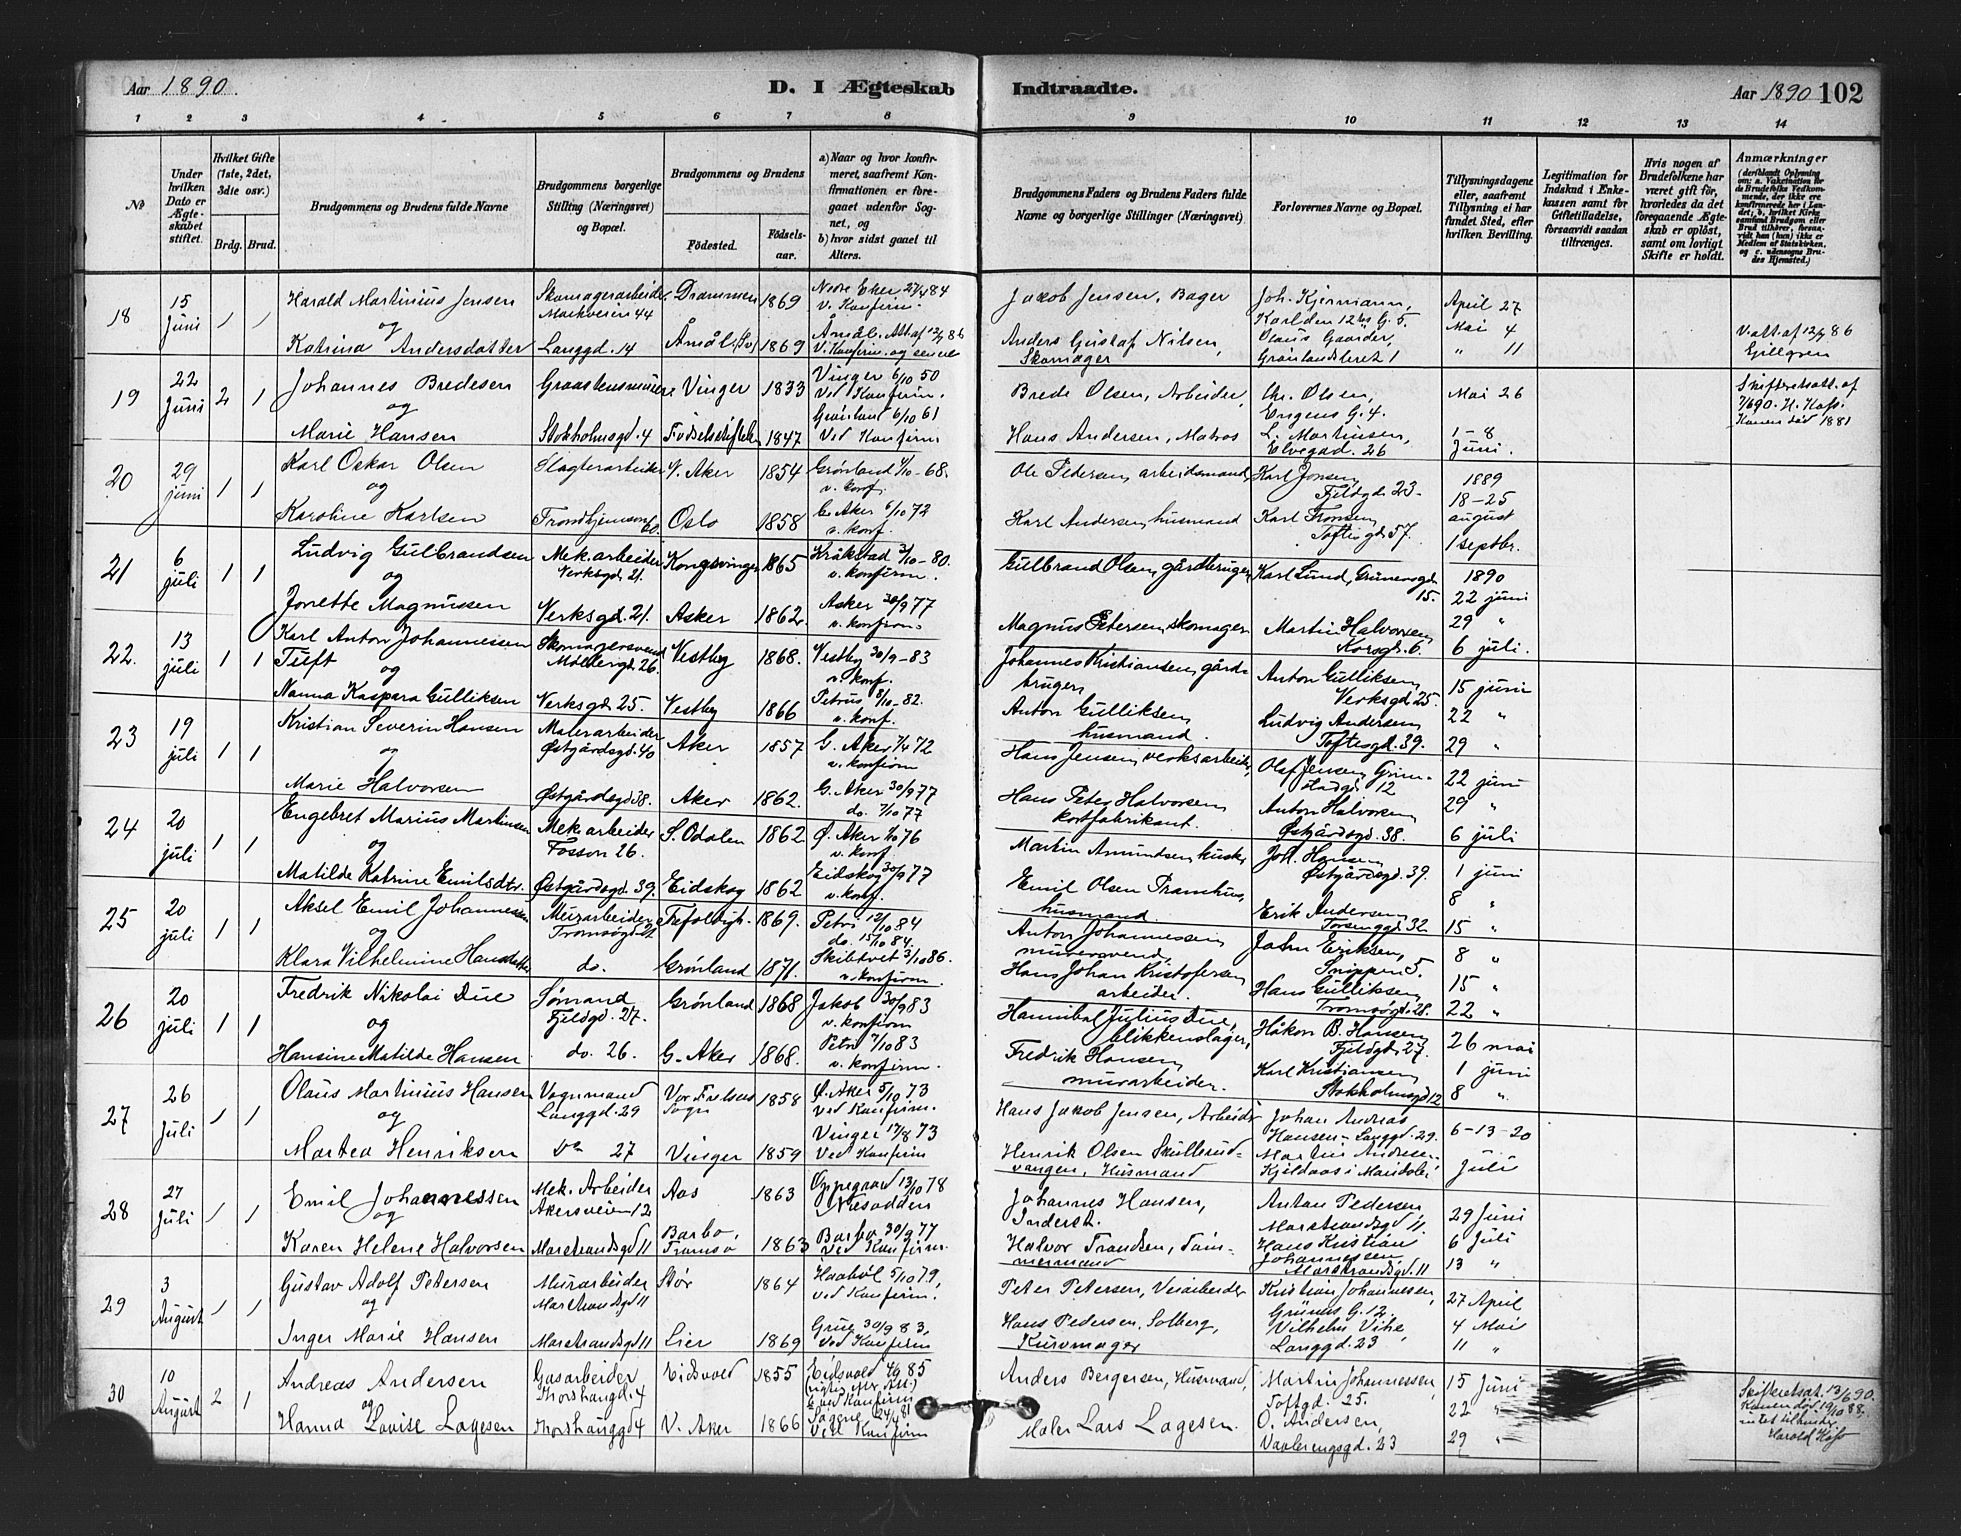 Aar 1890. D. I Ægteskab Indtraadte. Aar 1890 102
1 2 3 4 5 6 7 8 9 10 11 12 13 14
No
Under hvilken Dato er Ægteskabet stiftet.
Hvilket Gifte (1ste, 2det, 3die osv.)
Brdg. Brud.
Brudgommens og Brudens fulde Navne
Brudgommens borgerlige Stilling (Næringsvei) og Bopæl.
Brudgommens og Brudens
Fødested. Fødselsaar.
a) Naar og hvor konfirmeret, saafremt Konfirmationen er foregaaet udenfor Sognet, og
b) hvor sidst gaaet til Alters.
Brudgommens Faders og Brudens Faders fulde Navne og borgerlige Stillinger (Næringsvei)
Forlovernes Navne og Bopæl.
Tillysningsdagene eller, saafremt Tillysning ei har fundet Sted, efter hvilken Bevilling.
Legitimation for Indskud i Enkekassen samt for Giftetilladelse, forsaavidt saadan tiltrænges.
Hvis nogen af Brudefolkene har været gift før, hvorledes da det foregaaende Ægteskab er opløst, samt om lovligt Skifte er holdt.
Anmærkninger
(deriblandt Oplysning om: a. Vaksination for de Brudefolks Vedkommende, der ikke ere konfirmerede her i Landet; b. hvilket Kirkesamfund Brudgom eller Brud tilhører, forsaavidt han (hun) ikke er Medlem af Statskirken, og c. udensogns Brudes Hjemsted.)
18 15 Juni 1 1
Harald Martinius Jensen Skomagerarbeider Markveien 44 Drammen 1869 Nedre Eker 27/4 84 v. Konfirm.
Jakob Jensen, Bager Joh. Kjermann, April 27
og
Katrina Andersdatter Langgd. 14 Åmål (Sv) 1869 Åmål. Att. af 12/7 86 V. Konfirm. og senere
Anders Gustaf Nilsen, Skomager Olaus Gaarder, Grønlandsleret 1 Mai 4 " 11 V. att. af 12/7 86
19 22 Juni 2 1
Johannes Bredesen Graastensmurer Vinger 1833 Vinger 6/10 50 Ved Konfirm.
Brede Olsen, Arbeider, Chr. Olsen, Engens G. 4. Mai 26
og
Marie Hansen Stokholmsgd. 4 Fødselsstiftelsen 1847 Grønland 6/10 61 Ved Konfirm
Hans Andersen, Matros L. Martinsen, Elvegad. 26 1-8 Juni.
Skifteretsatt. af 7/6 90. H. Hafs. Konen død 1881
20 29 juni 1 1
Karl Oskar Olsen Slagterarbeider V. Aker 1854 Grønland 4/10-68. v. konf.
Ole Pedersen, arbeidsmand, Karl Jonsen, Fjeldgd. 23- 1889 18-25 august
og
Karoline Karlsen Trondhjemsv. 60. Oslo 1858 G. Aker 6/10 72 v. konf.
Karl Andersen, husmand Karl Fronsen, Toftesgd. 57. 1 septbr.
21 6 juli 1 1
Ludvig Gulbrandsen Mek arbeider Verksgd. 21. Kongsvinger 1865 Kråkstad 3/10-80. v. konfirm.
Gulbrand Olsen, gårdbruger, Karl Lund, Grünersgd 15. 1890 22 juni
og
Jonette Magnussen Verksgd. 21. Asker 1862. Asker 30/9 77 v. konfirm.
Magnus Petersen, skomager Martin Halvorsen, Korsgd. 6. 29 " 6 juli.
22. 13 juli 1 1
Karl Anton Johannessen Tuft Skomagersvend Møllergd. 26. Vestby 1868. Vestby 30/9-83 v. konf.
Johannes Kristiansen, gårdbruger, Anton Gulliksen, Verksgd. 25. 15 juni
og
Nanna Kaspara Gulliksen Verksgd. 25. Vestby 1866 Petrus 8/10-82. v. konf.
Anton Gulliksen, husmand. Ludvig Andersen, Toftesgd. 39. 22 " 29 "
23 19 juli 1 1
Kristian Severin Hansen Malerarbeider Østgårdsgd. 40 Aker 1857 G. Aker 7/4 72 v. konfirm
Hans Jensen, verksarbeider, Olaf Jensen, 22 juni
og
Marie Halvorsen Østgårdsgd. 38. Aker 1862. G. Aker 30/9 77 do. 7/10 77
Hans Peter Halvorsen, kortfabrikant. Anton Halvorsen, Østgårdsgd. 38. 29 " 6 juli
24 20 juli 1 1
Engebret Marius Martinsen Mek arbeider Fossen 26. S. Odalen 1862. Ø. Aker 1/10 76 v. konf.
Martin Amundsen, husm. Joh. Hansen, Østgårdsgd. 39. 1 juni
og
Matilde Katrine Emilsdtr. Østgårdsgd. 39. Eidskog 1862 Eidskog 30/9 77 v. konf.
Emil Olsen Tramhus, husmand. Erik Andersen, 8 " 15 "
25 20 juli 1 1
Aksel Emil Johannessen Murarbeider Tromsøgd. Trefoldigh. 1869. Petri 12/10 84 do. 15/10 84.
Anton Johannessen, mursvend, John Eriksen, Snippen 5. 8 "
og
Klara Vilhelmine Hansdatter do. Grønland 1871. Skibtvet 3/10 86. v. konfirm.
Hans Johan Kristofersen, arbeider. Hans Gulliksen, Tromsøgd. 28. 15 " 22 "
26 20 juli 1 1
Fredrik Nikolai Due Sømand Fjeldgd. 27. Grønland 1868 Jakob 30/9 83 v. konfirm
Hannibal Julius Due, blikkenslager, Håkon B. Hansen, Fjeldgd. 27. 26 mai
og
Hansine Matilde Hansen do. 26. G. Aker 1868. Petri 7/10 83 v. konfirm.
Fredrik Hansen, murarbeider. Karl Kristiansen, Stokholmsgd 12 1 juni 8 "
27 26 Juli 1 1
Olaus Martinius Hansen Vognmand Langgd. 29 Vor Frelsers Sogn 1858 Ø. Aker 5/10 73 Ved Konfirm.
Hans Jakob Jensen, Arbeider Johan Andreas Hansen - Langgd. 29. 6-13-20
og
Martea Henriksen Do 27 Vinger 1859 Vinger 17/8 73 Ved Konfirm
Henrik Olsen Skullerudvangen, Husmand Martin Andersen, Juli
28 27 Juli 1 1
Emil Johannessen Mek. Arbeider Akersveien 12 Aas 1863 Oppegaard 13/10 78 Næsodden
Johannes Hansen, Inderst. Anton Pedersen, Marstrandsgd 11, 29 Juni
og
Karen Helene Halvorsen Marstrandsgd 11 Barbo, Tromsø 1863 Barbo 30/9 77 Ved Konfirm.
Halvor Trondsen, Tømmermand Hans Kristian Johannessen Marstrandsgd. 11 6 Juli 13 "
29 3 August 1 1
Gustav Adolf Petersen Murarbeider Marstrandsgd 11 Stör 1864 Haabøl 5/10 79, ved Konfirm.
Peter Petersen, Veiarbeider Kristian Johannessen, Grüners G. 12. 27 April
og
Inger Marie Hansen Marstrandsgd 11 Lier 1869 Grue 30/9 83, Ved Konfirm
Hans Pedersen Solberg, Kurvmager Vilhelm Vihe, Langgd. 23 4 Mai 11 "
30 10 August 2 1
Andreas Andersen Gasarbeider Thorshaugd. 4 Eidsvold 1855 Eidsvold 4/9 85
Anders Bergersen, Husmand, Martin Johannessen, Toftgd. 25. 15 Juni
og
Hanna Lovise Lagesen Thorshauggd 4 V. Aker 1866 Sagene 24/4 81 Ved Konfirm
Maler Lars Lagesen. O. Andersen, Vaalerengsgd. 23 22 " 29 "
Skifteretsat. 13/6 90. Konen død 19/10 88, intet tilhinder Harald Hafs